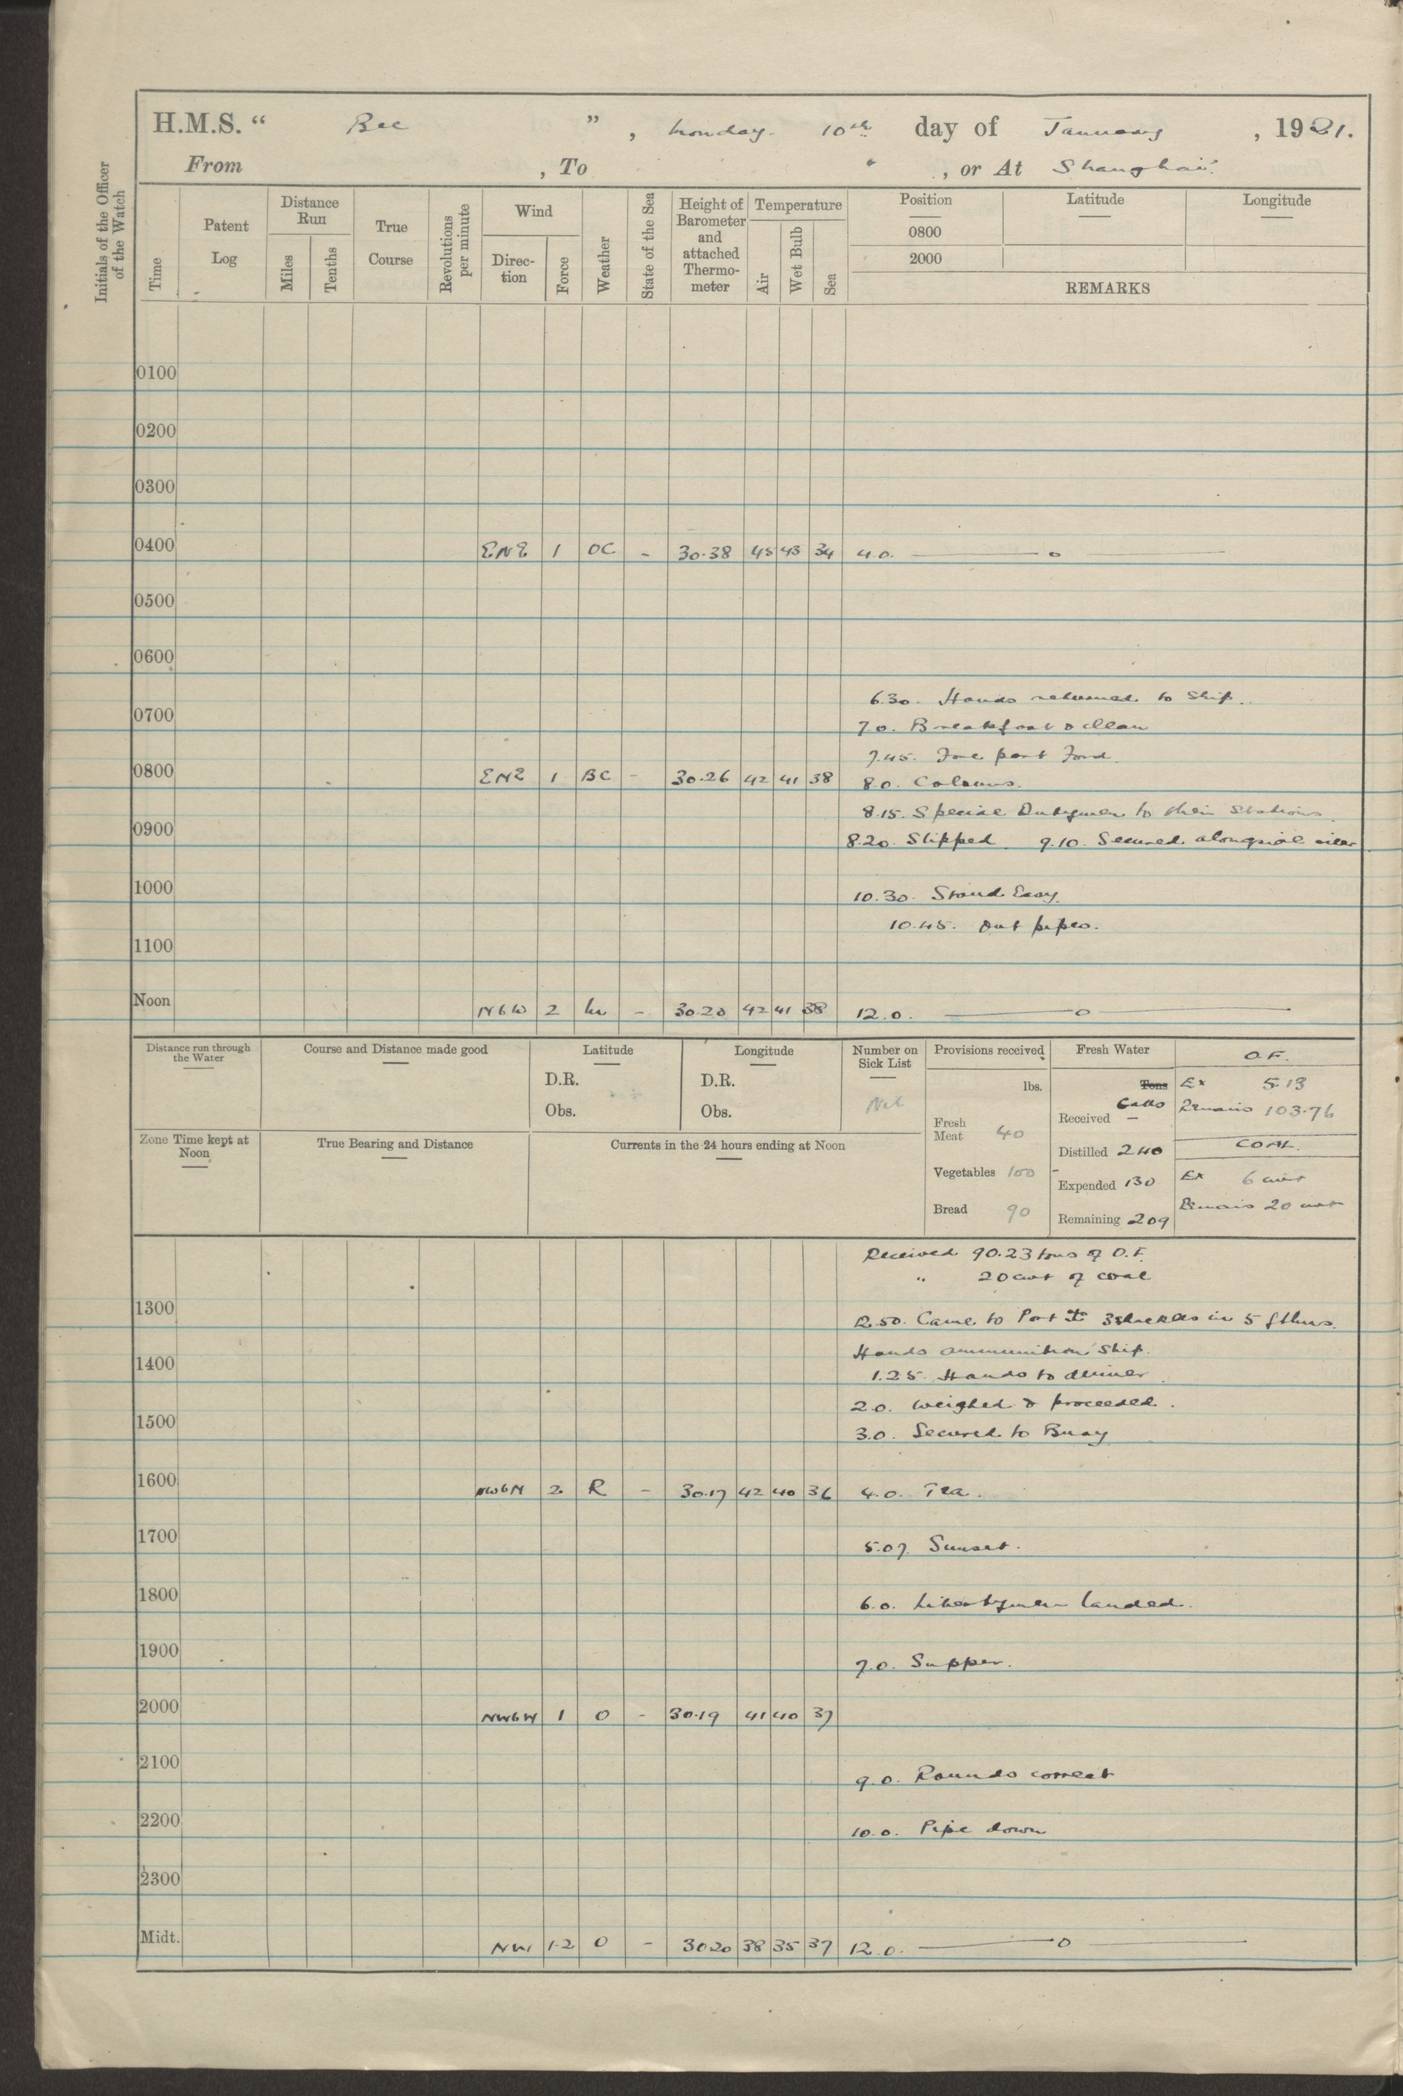 H.M.S. “ Bee ” , Monday 10th day of January , 1921.
From , To , or At Shanghai
Initials of the Officer of the Watch
Time
Patent Log
Distance Run
Miles
Tenths
True Course
Revolutions per minute
Wind
Direc-tion
Force
Weather
State of the Sea
Height of Barometer and attached Thermo-meter
Temperature
Air
Wet Bulb
Sea
Position
0800
2000
Latitude
Longitude
REMARKS
0100
0200
0300
0400 ENE 1 OC - 30.38 45 43 34 4.0. —o—
0500
0600
6.30. Hands returned to Ship.
0700
7.0. Breakfast & clean
7.45. Fore part Fond.
0800 ENE 1 BC - 30.26 42 41 38 8.0. Colours.
8.15. Special Dutymen to their Stations.
0900
8.20. Slipped. 9.10. Secured alongside oiler
1000
10.30. Stand Easy.
10.45. Out pipes.
1100
Noon NbW 2 M - 30.20 42 41 38 12.0. —o—
Distance run through the Water
Course and Distance made good
Latitude
D.R.
Obs.
Longitude
D.R.
Obs.
Number on Sick List
Nil
Provisions received
lbs.
Fresh Meat 40
Vegetables 100
Bread 90
Fresh Water
Tons
Galls
Received -
Distilled 240
Expended 130
Remaining 209
O.F.
Ex 5.13
Remains 103.76
COAL.
Ex 6 cwt
Remains 20 cwt
Zone Time kept at Noon
True Bearing and Distance
Currents in the 24 hours ending at Noon
Received 90.23 tons of O.F.
" 20 cwt of coal
1300
12.50. Came to Port ⚓ 3 shackles in 5 fthms.
Hands ammunition ship.
1400
1.25. Hands to dinner.
2.0. Weighed & proceeded.
1500
3.0. Secured to Buoy
1600 NWbN 2 R - 30.17 42 40 36 4.0. Tea.
1700
5.07. Sunset.
1800
6.0. Libertymen landed.
1900
7.0. Supper.
2000 NWbW 1 O - 30.19 41 40 37
2100
9.0. Rounds correct
2200
10.0. Pipe down
2300
Midt. NW 1-2 O - 30 20 38 35 37 12.0. —o—